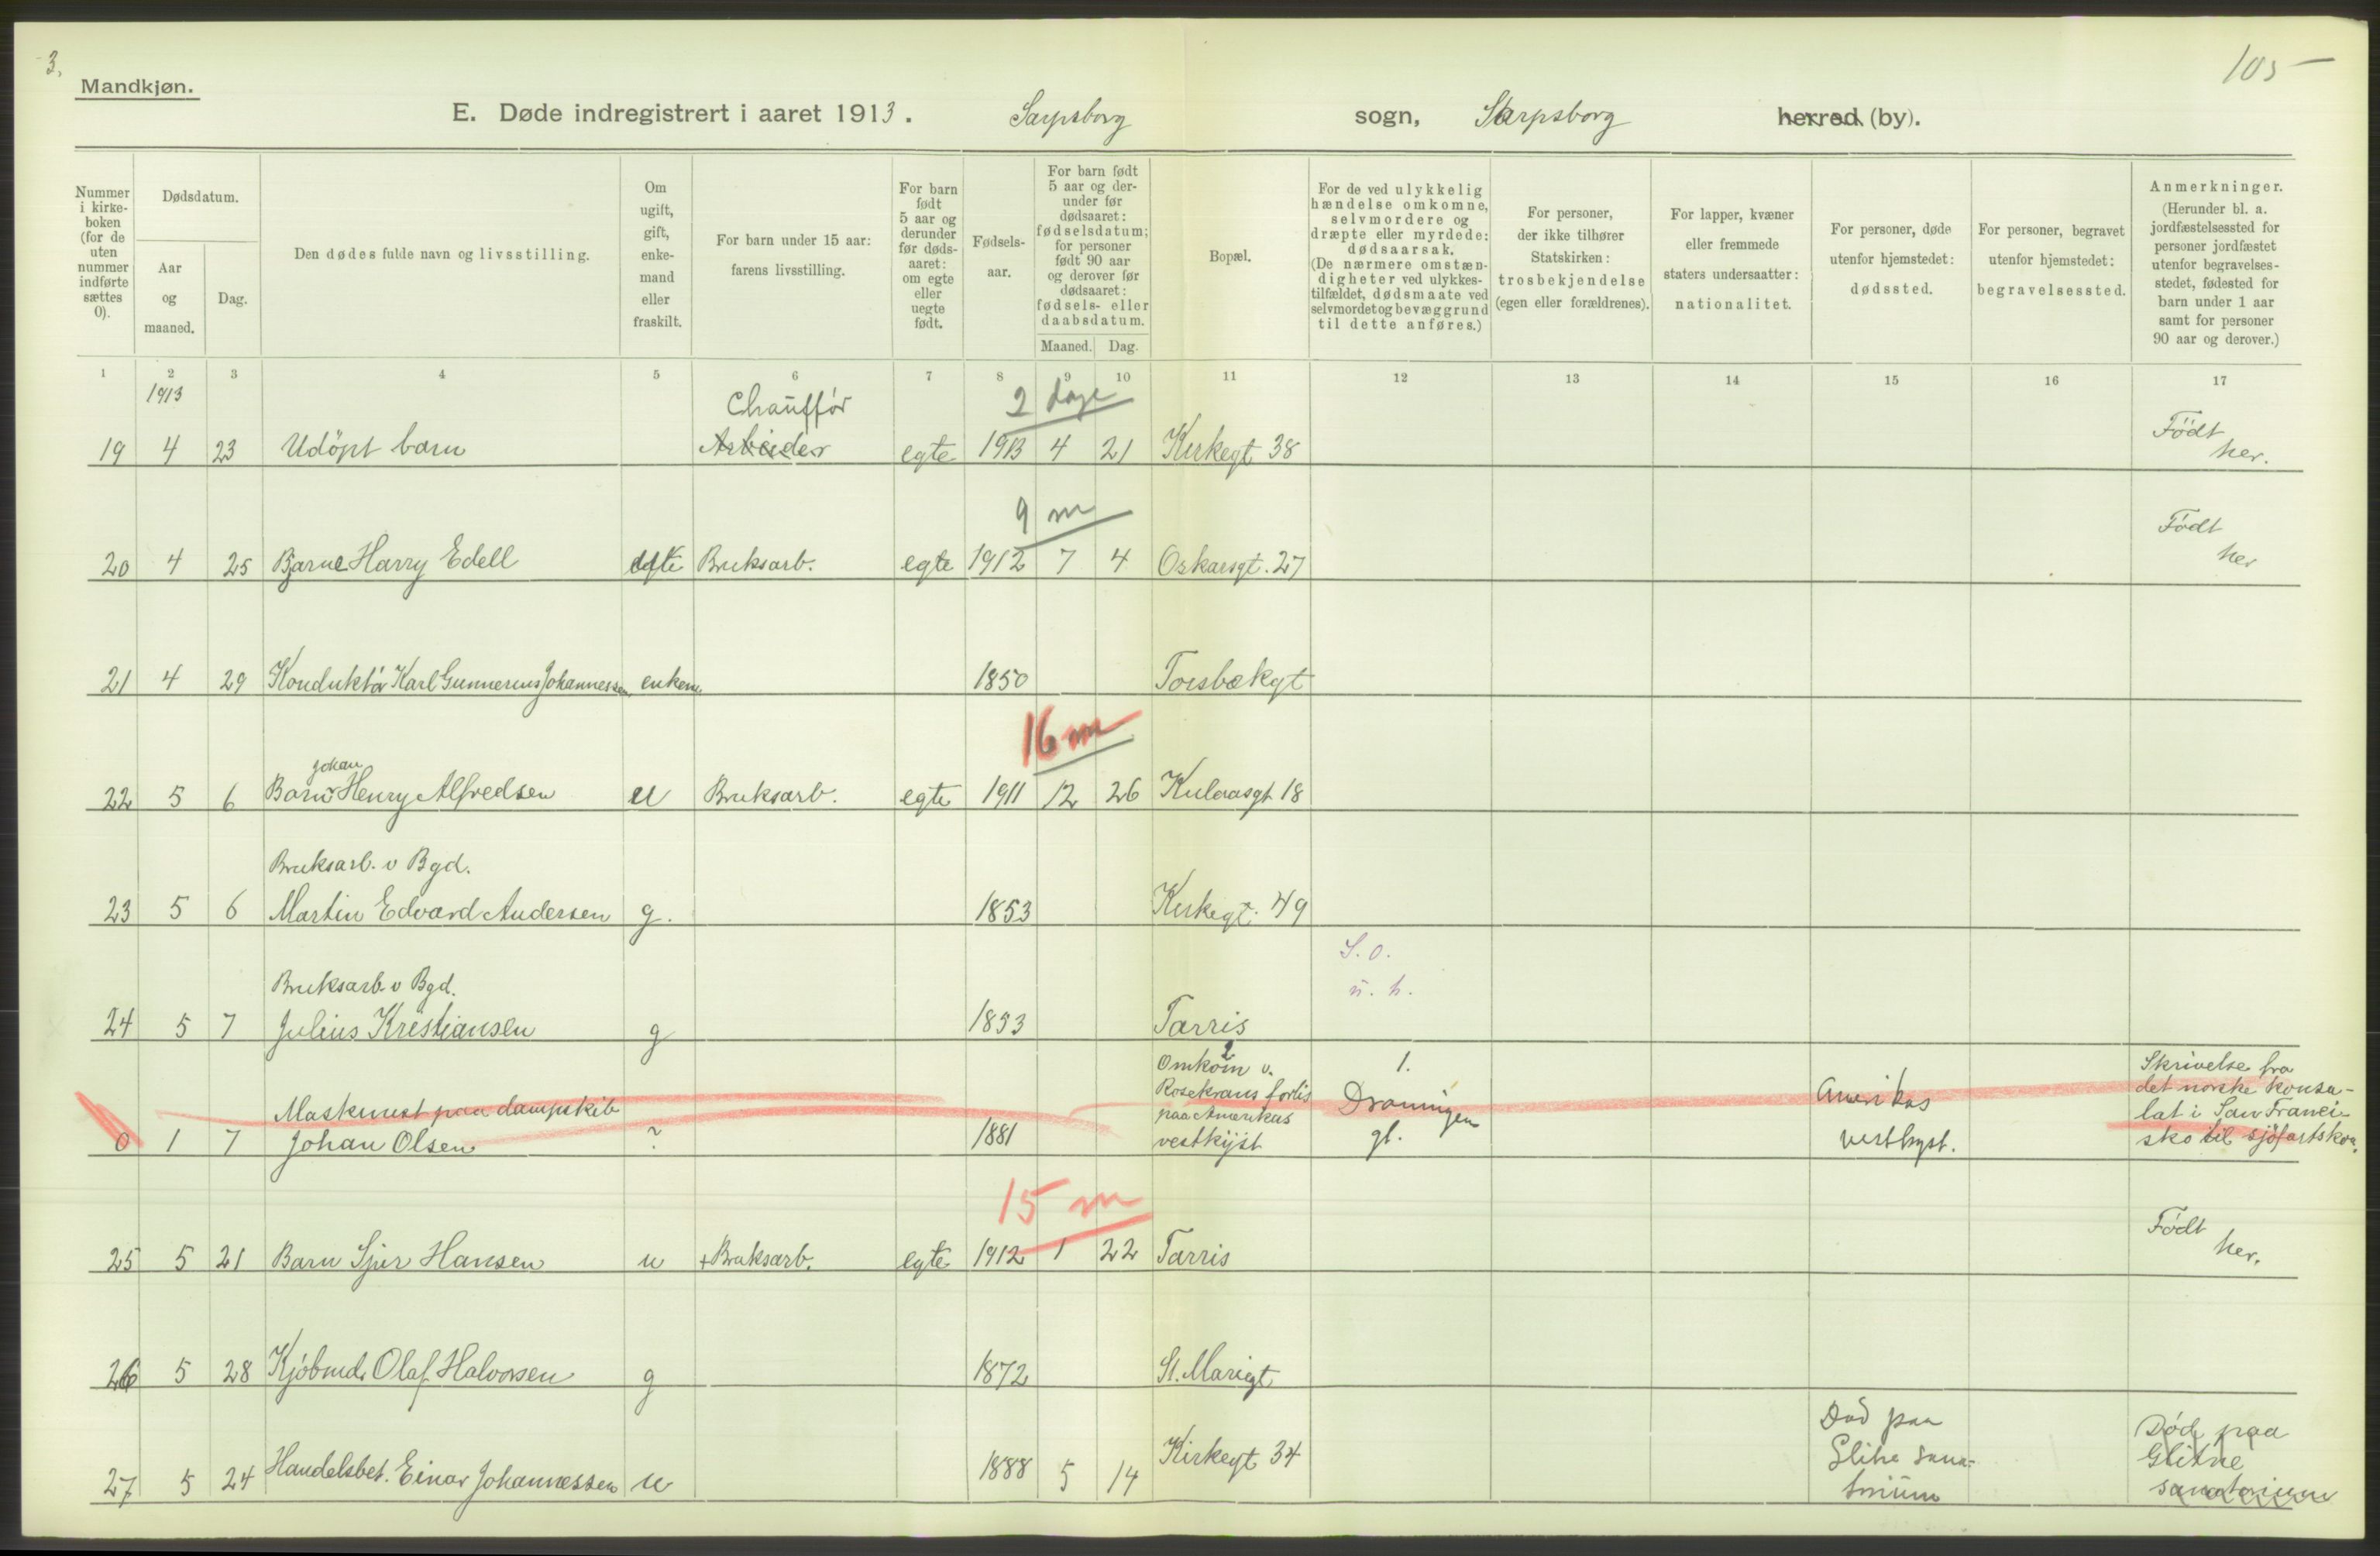 3.
105
Mandkjøn.
E. Døde indregistrert i aaret 1913. Sarpsborg sogn, Sarpsborg herred (by).
Nummer i kirke-boken (for de uten nummer indførte sættes 0).
Dødsdatum.
Aar og maaned.
Dag.
Den dødes fulde navn og livsstilling.
Om ugift, gift, enke-mand eller fraskilt.
For barn under 15 aar: farens livsstilling.
For barn født 5 aar og derunder før døds-aaret: om egte eller uegte født.
Fødsels-aar.
For barn født 5 aar og der-under før dødsaaret: fødselsdatum; for personer født 90 aar og derover før dødsaaret: fødsels- eller daabsdatum.
Maaned. Dag.
Bopæl.
For de ved ulykkelig hændelse omkomne, selvmordere og dræpte eller myrdede: dødsaarsak. (De nærmere omstæn-digheter ved ulykkes-tilfældet, dødsmaate ved selvmordet og bevæggrund til dette anføres.)
For personer, der ikke tilhører Statskirken: trosbekjendelse (egen eller forældrenes).
For lapper, kvæner eller fremmede staters undersaatter: nationalitet.
For personer, døde utenfor hjemstedet: dødssted.
For personer, begravet utenfor hjemstedet: begravelsessted.
Anmerkninger. (Herunder bl. a. jordfæstelsessted for personer jordfæstet utenfor begravelses-stedet, fødested for barn under 1 aar samt for personer 90 aar og derover.)
1 2 3 4 5 6 7 8 9 10 11 12 13 14 15 16 17
1913
Chauffør
2 dage
19 4 23 Udöpt barn Arbeider egte 1913 4 21 Kirkegt 38 Født her.
9 m
20 4 25 Bjarne Harry Edell Bruksarb. egte 1912 7 4 Oskarsgt. 27 Født her
21 4 29 Konduktör Karl Gunnerius Johannessen enkem. 1850 Torsbækgt
16 m
Johan
22 5 6 Barn Henry Alfredsen u Bruksarb. egte 1911 12 26 Kulaasgt 18
Bruksarb. v Bgd.
23 5 6 Martin Edvard Andersen g. 1853 Kirkegt. 49
S. o.
u. h.
Bruksarb. v Bgd.
24 5 7 Julius Kristiansen g 1853 Tarris
Maskinist paa dampskib
0 1 7 Johan Olsen ? 1881
Omkom v.
Rosekrans forlis
paa Amerikas
vestkyst
1.
Drowningen
gl.
Amerikas
vestkyst.
Skrivelse fra
det norske konsu-
lat i San Franci-
sko til sjöfartskon.
15 m
25 5 21 Barn Sjur Hansen u + Bruksarb. egte 1912 1 22 Tarris Født her.
26 5 28 Kjöbmd. Olaf Halvorsen g 1872 St. Mariegt
27 5 24 Handelsbet. Einar Johannessen u 1888 5 14 Kirkegt 34
Død paa
Glitre sana-
torium
Död paa
Glitre
sanatorium